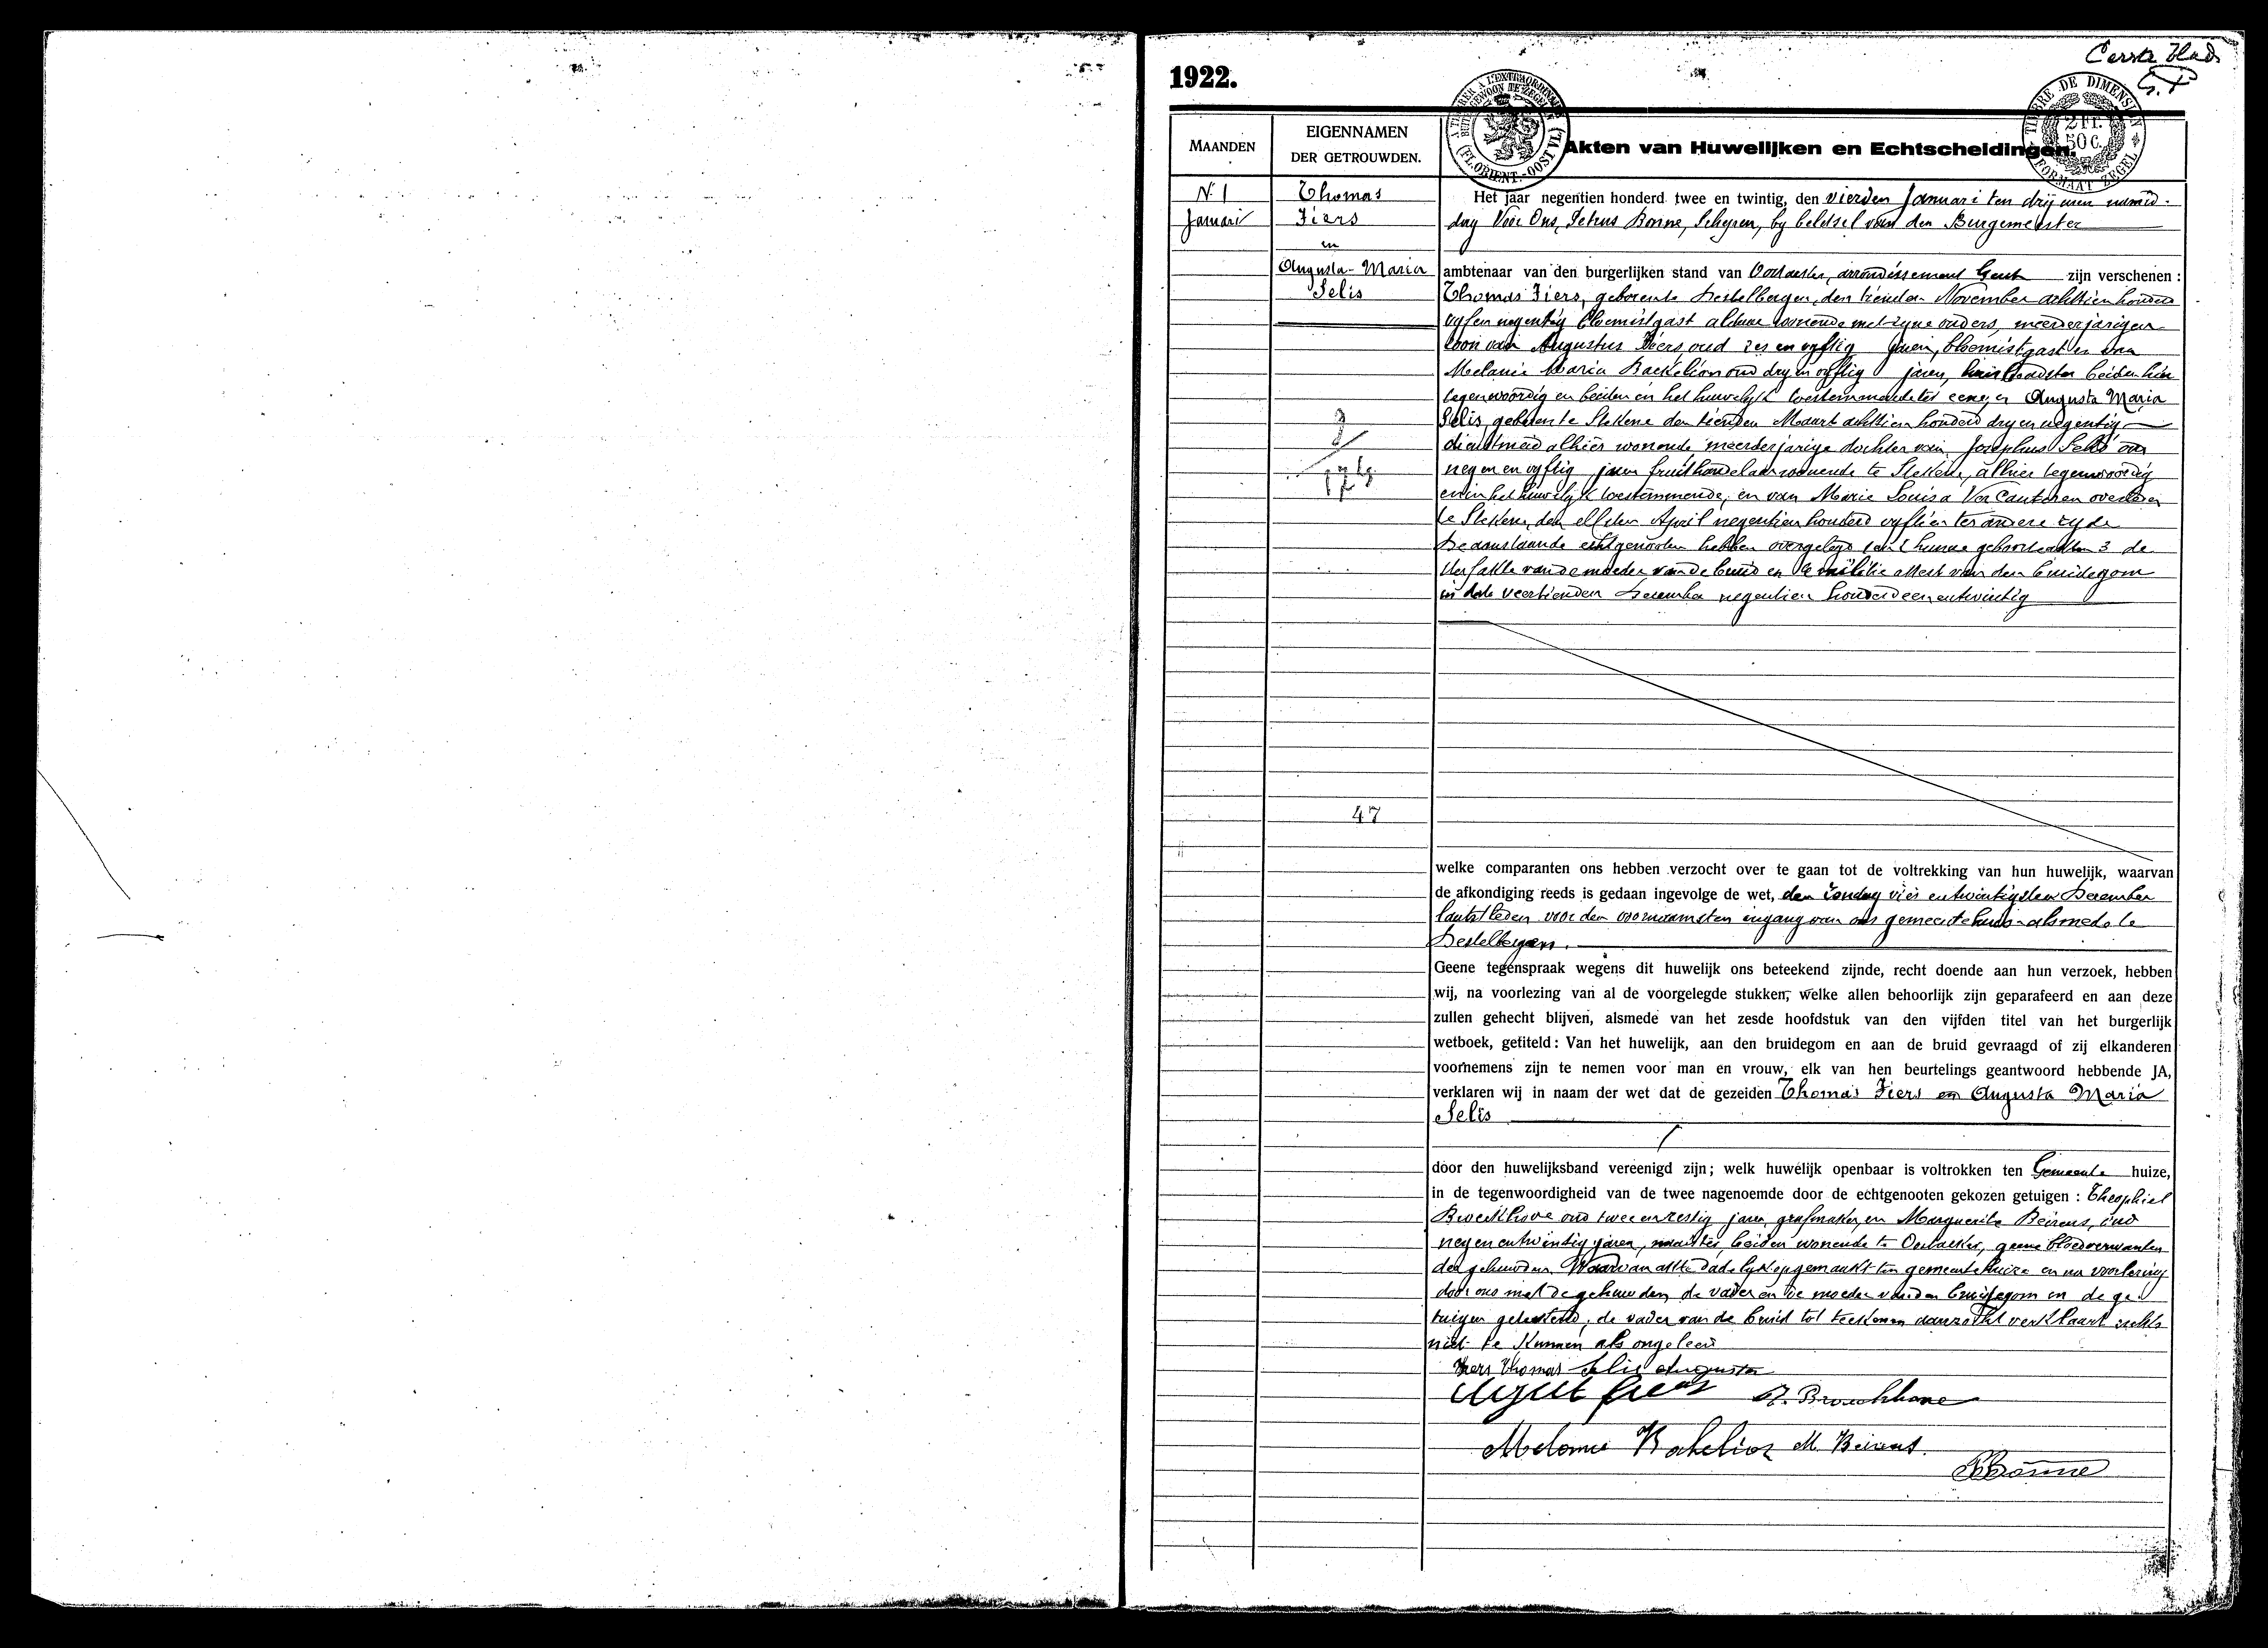 Eerste Blad
1922.
G.T
A TIMBRER A L'EXTRAORDINAIRE
BUITENGEWOON TE ZEGELEN
(FL. ORIENT.-OOST VL.)
TIMBRE DE DIMENSION
2 FR.
50 C.
FORMAAT ZEGEL
MAANDEN
EIGENNAMEN
DER GETROUWDEN.
Akten van Huwelijken en Echtscheidingen.
N. 1
Januari
Thomas
Fiers
en
Augusta-Maria
Selis
47
Het jaar negentien honderd twee en twintig, den vierden Januari ten drij uren namid-
dag Voor Ons, Petrus Bonne, Schepen, by beletsel van den Burgemeester
ambtenaar van den burgerlijken stand van Oostacker, arrondissement Gent zijn verschenen :
Thomas Fiers, geboren te Destelbergen, den tienden November achttien honderd
vyf en negentig bloemistgast aldaar wonende met zyne ouders, meerderjarigen
zoon van Augustus Fiers oud zes en vyftig jaren, bloemistgast en van
Melanie Maria Backelion oud dry en vyftig jaren, beiden hier
tegenwoordig en beiden in het huwelyk toestemmende ter eene, en Augusta Maria
Selis, geboren te Stekene den tienden Maart achttien honderd dry en negentig
dienstmeid alhier wonende meerderjarige dochter van Josephus Selis oud
negen en vyftig jaren fruithandelaar wonende te Stekene, alhier tegenwoordig
en in het huwelijk toestemmende, en van Marie Louisa Van Cauteren overleden
te Stekene, den elfden April negentien honderd vyftien ter andere zyde
De aanstaande echtgenooten hebben overgelegd 1 en 2 hunne geboorteakten 3 de
sterfakte van de moeder van de bruid en 4 militie attest van den bruidegom
in date veertienden December negentien honderd een en twintig
welke comparanten ons hebben verzocht over te gaan tot de voltrekking van hun huwelijk, waarvan
de afkondiging reeds is gedaan ingevolge de wet, den Zondag vier en twintigsten December
laatstleden voor den voornaamsten ingang van ons gemeentehuis alsmede te
Destelbergen.
Geene tegenspraak wegens dit huwelijk ons beteekend zijnde, recht doende aan hun verzoek, hebben
wij, na voorlezing van al de voorgelegde stukken, welke allen behoorlijk zijn geparafeerd en aan deze
zullen gehecht blijven, alsmede van het zesde hoofdstuk van den vijfden titel van het burgerlijk
wetboek, getiteld : Van het huwelijk, aan den bruidegom en aan de bruid gevraagd of zij elkanderen
voornemens zijn te nemen voor man en vrouw, elk van hen beurtelings geantwoord hebbende JA,
verklaren wij in naam der wet dat de gezeiden Thomas Fiers en Augusta Maria
Selis
door den huwelijksband vereenigd zijn ; welk huwelijk openbaar is voltrokken ten Gemeente huize,
in de tegenwoordigheid van de twee nagenoemde door de echtgenooten gekozen getuigen : Theophiel
Broeckhove oud twee en zestig jaren, grafmaker, en Marguerite Beirens, oud
negen en twintig jaren, naaister beiden wonende te Oostacker, geene bloedverwanten
der gehuwden. Waarvan akte dadelyk opgemaakt ten gemeentehuize en na voorlezing
door ons met de gehuwden, de vader en de moeder van den bruidegom en de ge-
tuigen geteekend, de vader van de bruid tot teekenen aanzocht verklaart zulks
niet te kunnen als ongeleerd
Fiers Thomas Selis Augusta
August Fiers T. Broeckhove
Melanie Backelion M. Beirens.
P. Bonne